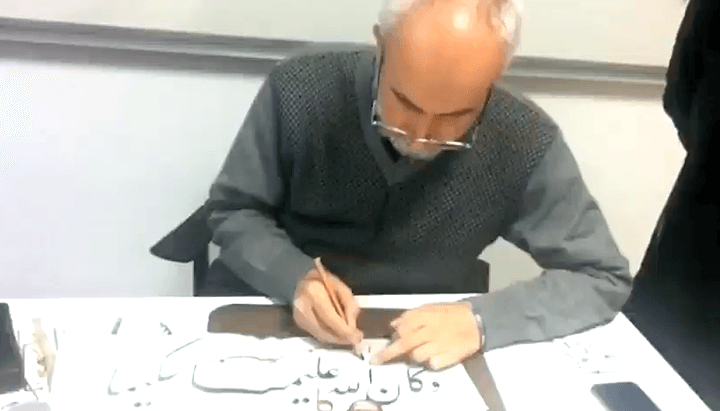 وكان الله عليما حكيما